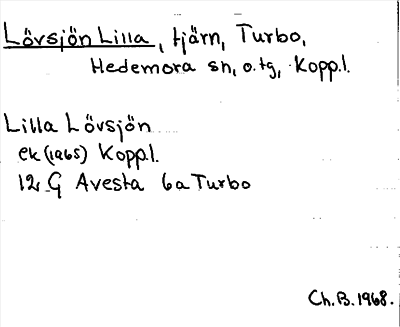 Lövsjön Lilla, tjärn, Turbo,
Hedemora sn, o. tg, Kopp.l.
Lilla Lövsjön
ek (1965) Kopp.l.
12 G Avesta 6a Turbo
Ch.B. 1968.